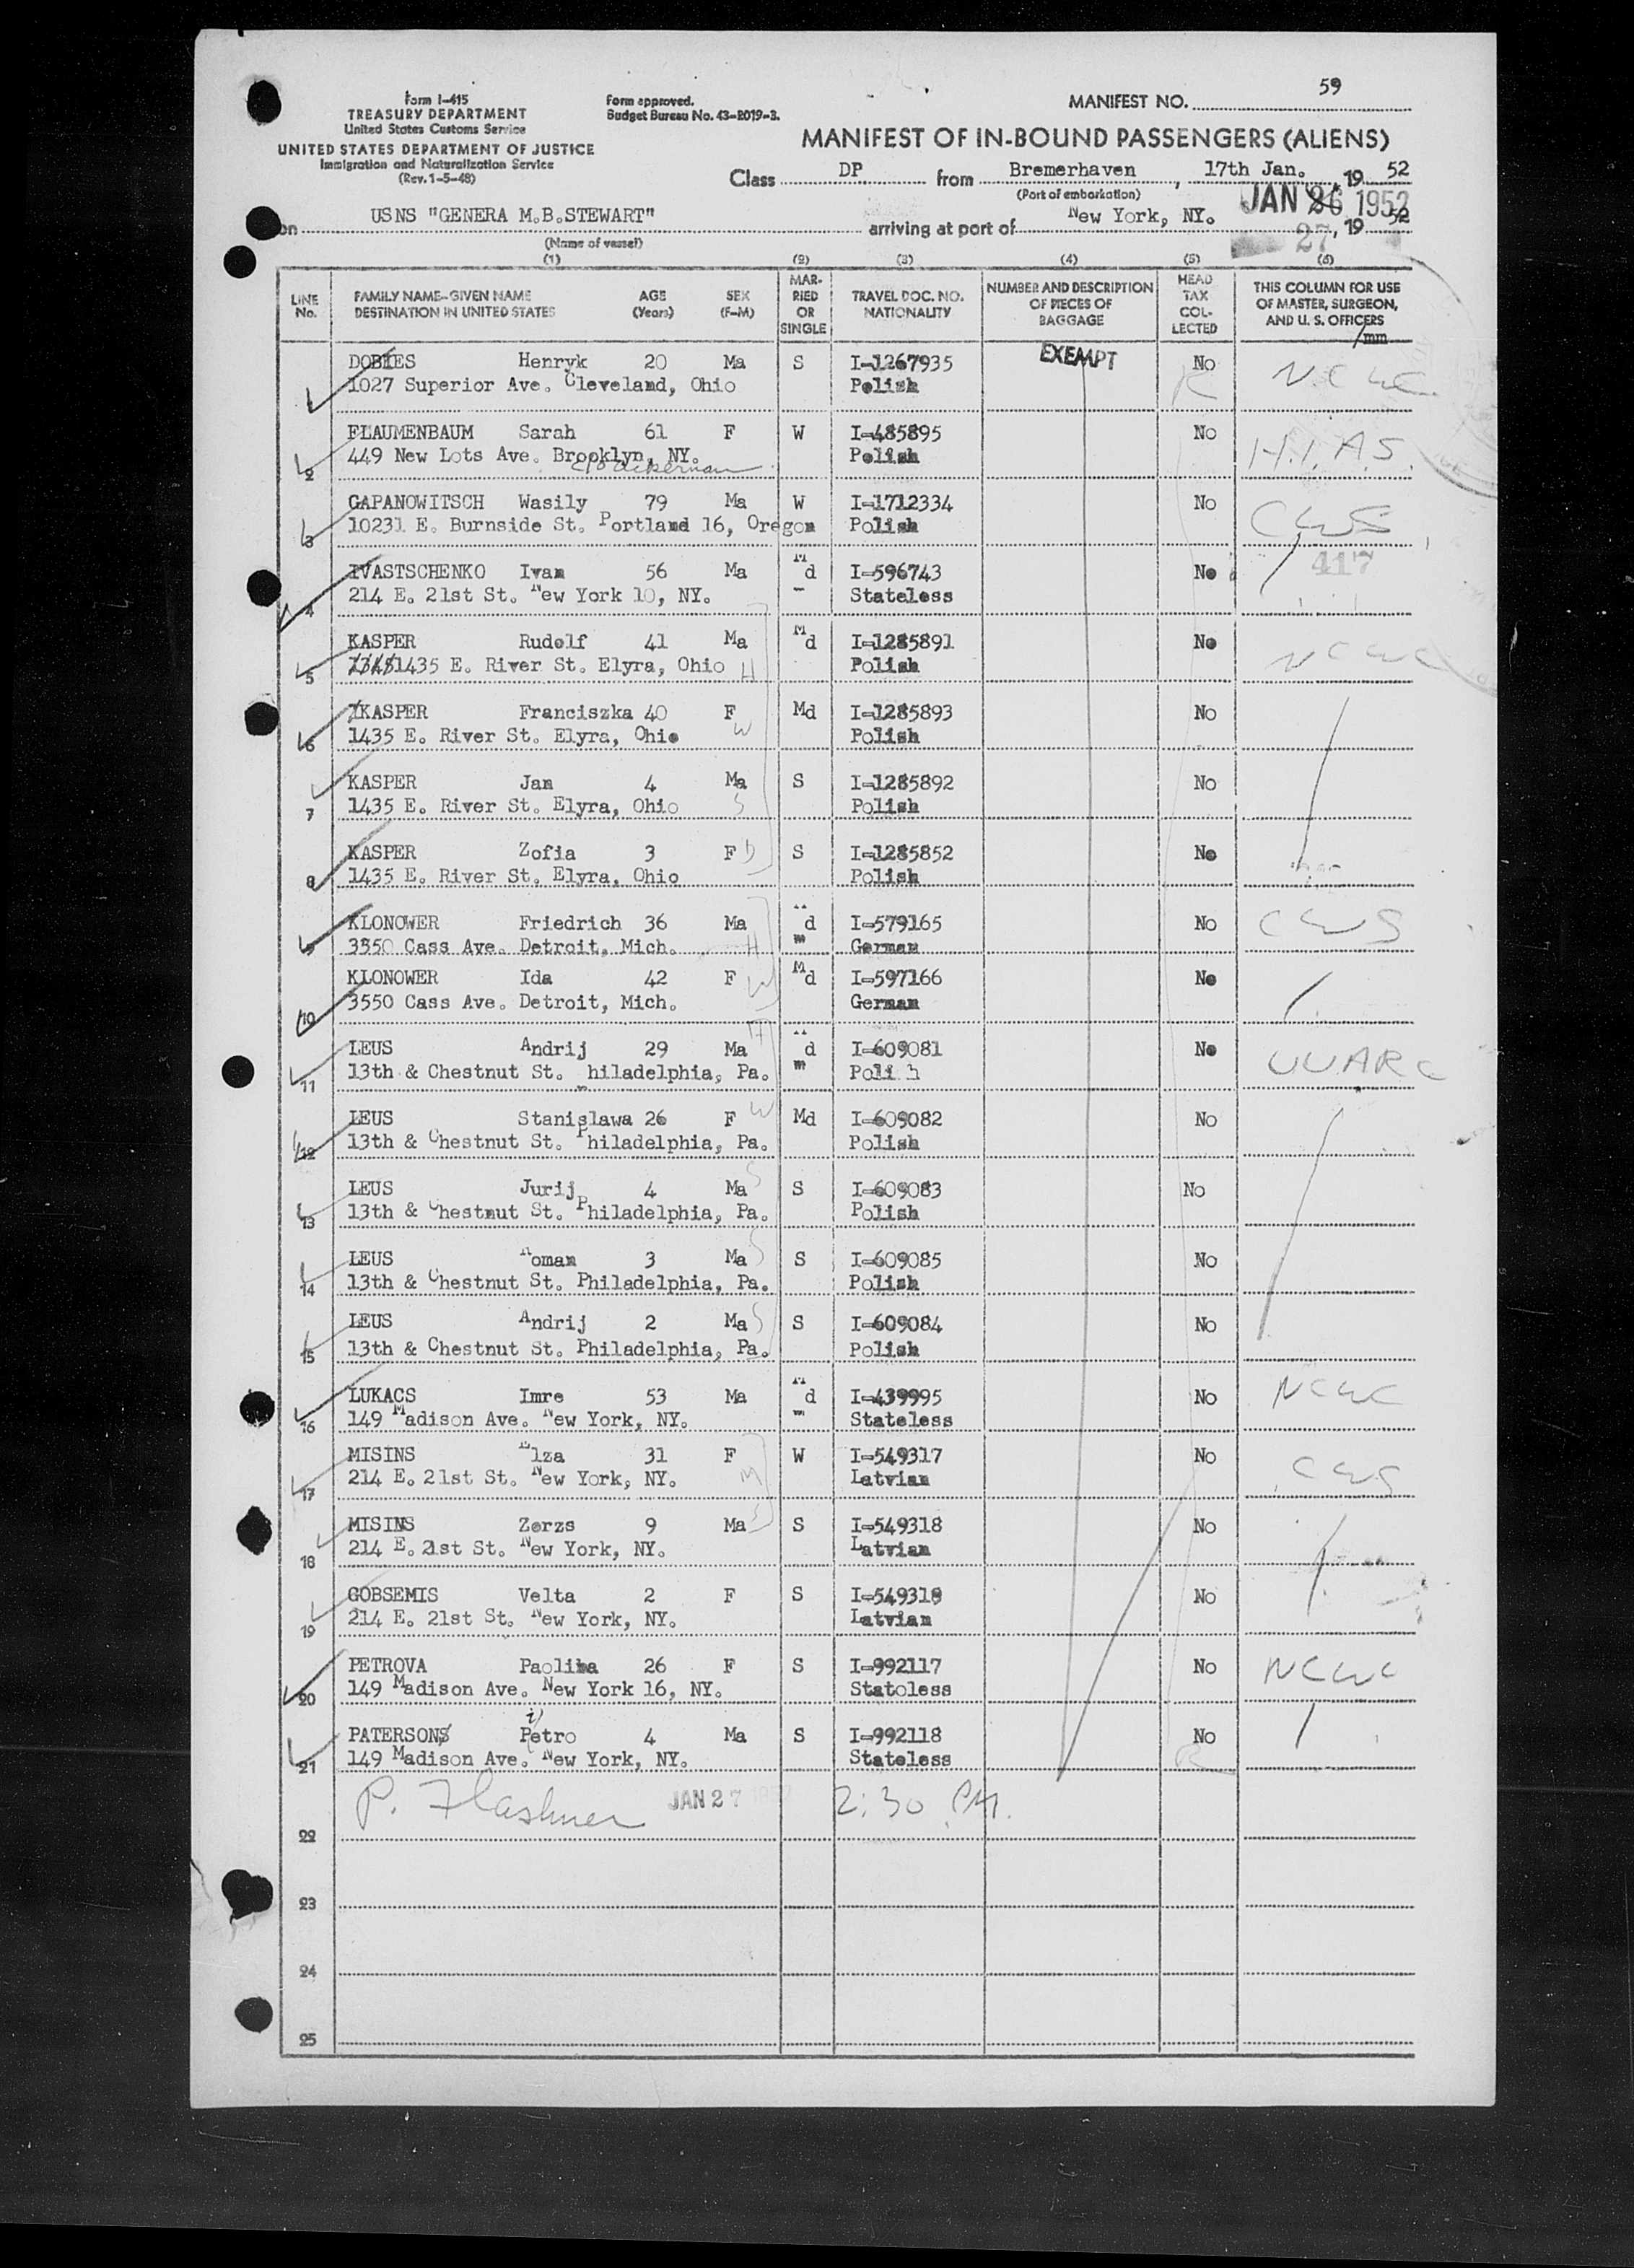 59
Form I-415
TREASURY DEPARTMENT
United States Customs Service
UNITED STATES DEPARTMENT OF JUSTICE
Immigration and Naturalization Service
(Rev. 1-5-48)
Form approved.
Budget Bureau No. 43-2019-3.
MANIFEST NO.
MANIFEST OF IN-BOUND PASSENGERS (ALIENS)
Class DP from Bremerhaven, 17th Jan., 19 52
(Port of embarkation)
on USNS "GENERA M.B.STEWART" arriving at port of New York, NY. JAN 26 1952
27, 19 52
(Name of vessel)
(1) (2) (3) (4) (5) (6)
LINE No. FAMILY NAME-GIVEN NAME DESTINATION IN UNITED STATES AGE (Years) SEX (F-M) MARRIED OR SINGLE TRAVEL DOC. NO. NATIONALITY NUMBER AND DESCRIPTION OF PIECES OF BAGGAGE HEAD TAX COLLECTED THIS COLUMN FOR USE OF MASTER, SURGEON, AND U. S. OFFICERS
/mm
DOBIES Henryk 20 Ma S I-1267935 EXEMPT No NCWC
1 1027 Superior Ave. Cleveland, Ohio Polish
FLAUMENBAUM Sarah 61 F W I-485895 No H.I.A.S.
2 449 New Lots Ave. Brooklyn, NY. Polish
c/o Ackerman
GAPANOWITSCH Wasily 79 Ma W I-1712334 No CWS
3 10231 E. Burnside St. Portland 16, Oregon Polish
IVASTSCHENKO Ivan 56 Ma Md I-596743 No 417
4 214 E. 21st St. New York 10, NY. Stateless
KASPER Rudolf 41 Ma Md I-1285891 No NCWC
5 1435 E. River St. Elyra, Ohio H Polish
KASPER Franciszka 40 F Md I-1285893 No
6 1435 E. River St. Elyra, Ohio W Polish
KASPER Jan 4 Ma S I-1285892 No
7 1435 E. River St. Elyra, Ohio S Polish
KASPER Zofia 3 F D S I-1285852 No
8 1435 E. River St. Elyra, Ohio Polish
KLONOWER Friedrich 36 Ma d I-579165 No CWS
9 3350 Cass Ave. Detroit, Mich. H German
KLONOWER Ida 42 F Md I-597166 No
10 3550 Cass Ave. Detroit, Mich. W German
LEUS Andrij 29 Ma d I-609081 No UUARC
11 13th & Chestnut St. hiladelphia, Pa. Poli h
LEUS Stanislawa 26 F W Md I-609082 No
12 13th & Chestnut St. Philadelphia, Pa. Polish
LEUS Jurij 4 Ma S S I-609083 No
13 13th & Chestnut St. Philadelphia, Pa. Polish
LEUS Roman 3 Ma S S I-609085 No
14 13th & Chestnut St. Philadelphia, Pa. Polish
LEUS Andrij 2 Ma S S I-609084 No
15 13th & Chestnut St. Philadelphia, Pa. Polish
LUKACS Imre 53 Ma d I-439995 No NCWC
16 149 Madison Ave. New York, NY. Stateless
MISINS Elza 31 F W I-549317 No CWS
17 214 E. 21st St. New York, NY. M Latvian
MISINS Zorzs 9 Ma S S I-549318 No
18 214 E. 21st St. New York, NY. Latvian
GOBSEMIS Velta 2 F S I-549319 No
19 214 E. 21st St. New York, NY. Latvian
PETROVA Paolina 26 F S I-992117 No NCWC
20 149 Madison Ave. New York 16, NY. Statoless
PATERSONS Petro 4 Ma S I-992118 No
21 149 Madison Ave. New York, NY. Stateless
P. Flashner JAN 27 2:30 PM.
22
23
24
25